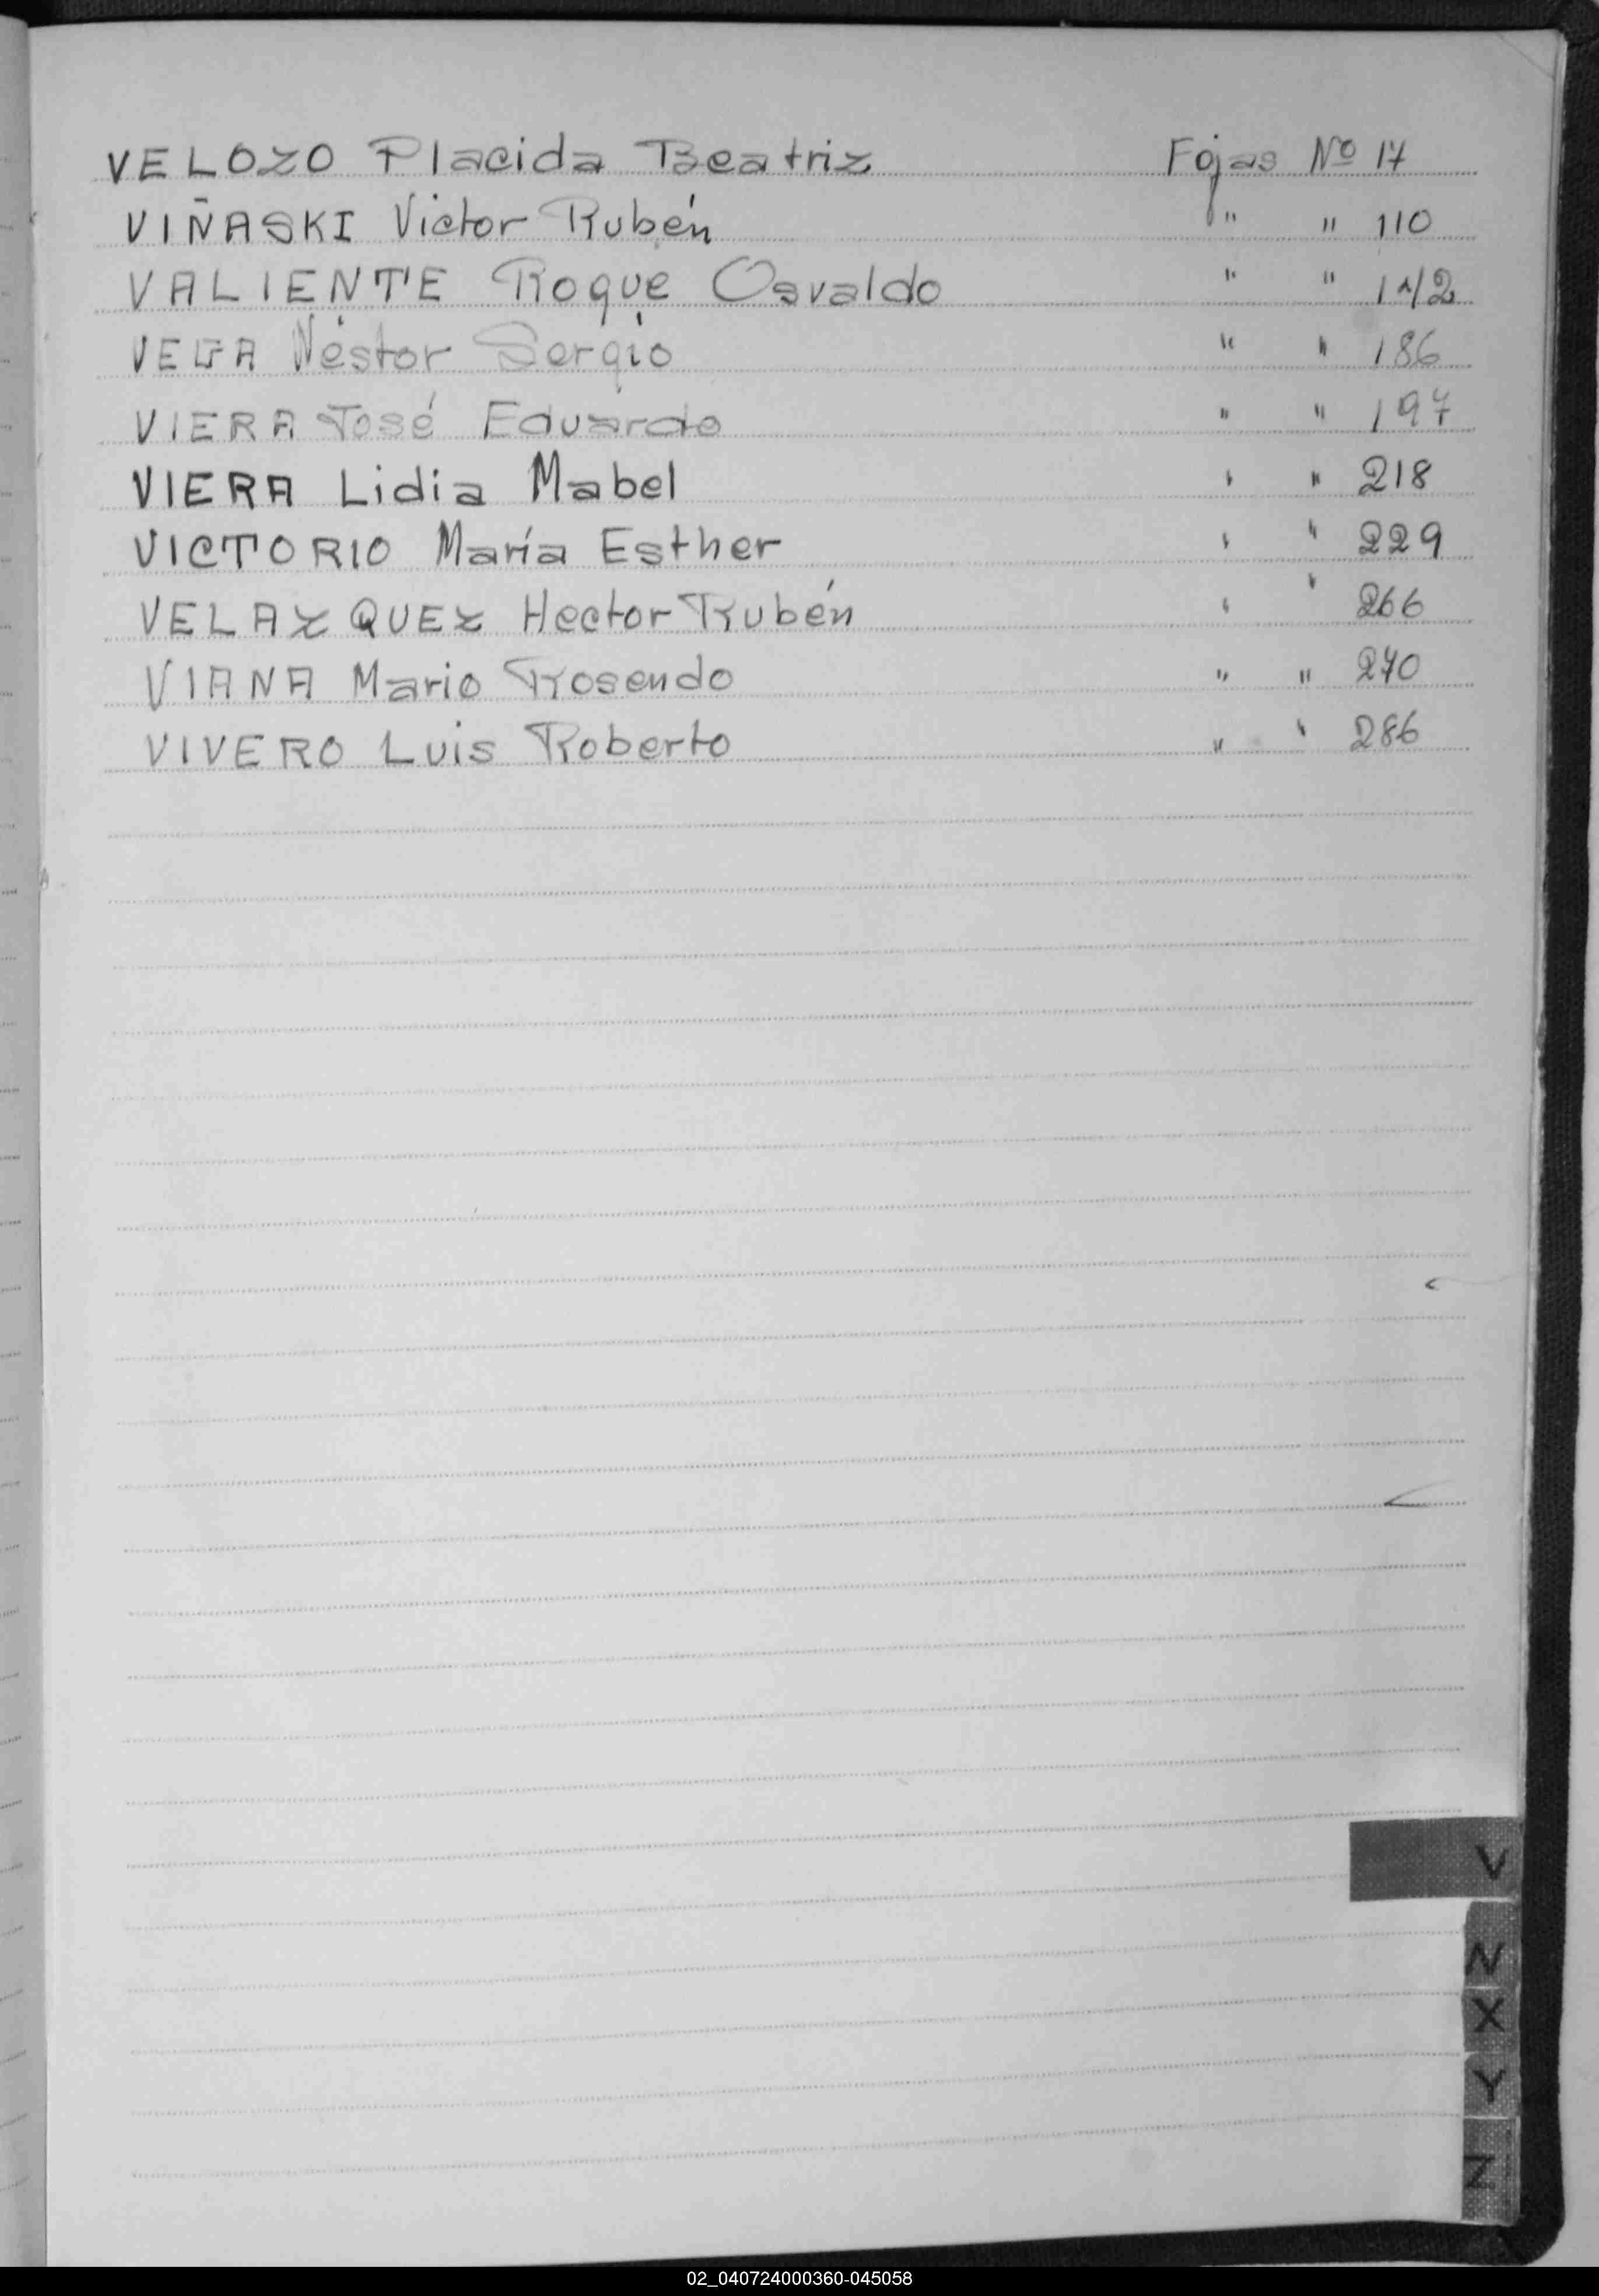 VELOZO Placida Beatriz Fojas Nº 17
VIÑASKI Victor Rubén " " 110
VALIENTE Roque Osvaldo " " 142
VEGA Néstor Sergio " " 186
VIERA José Eduardo " " 197
VIERA Lidia Mabel " " 218
VICTORIO María Esther " " 229
VELAZQUEZ Hector Rubén " " 266
VIANA Mario Rosendo " " 270
VIVERO Luis Roberto " " 286
V
X
Y
Z
02_040724000360-045058